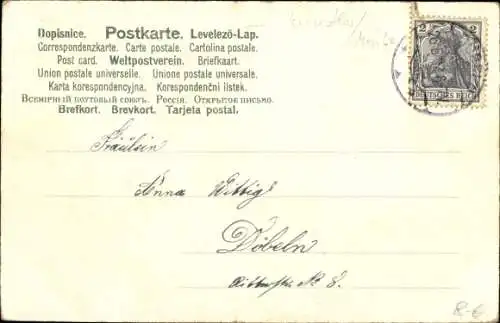 Dopisnice. Postkarte. Levelező-Lap.
Correspondenzkarte. Carte postale. Cartolina postale.
Post card. Weltpostverein. Briefkaart.
Union postale universelle. Unione postale universale.
Karta korespondencyjna. Korespondenční listek.
Всемірный почтовый союзъ. Россія. Открытое письмо.
Brefkort. Brevkort. Tarjeta postal.
2 2
DEUTSCHES REICH
Fräulein
Anna Wittig
Döbeln
Ritterstr. N 8.